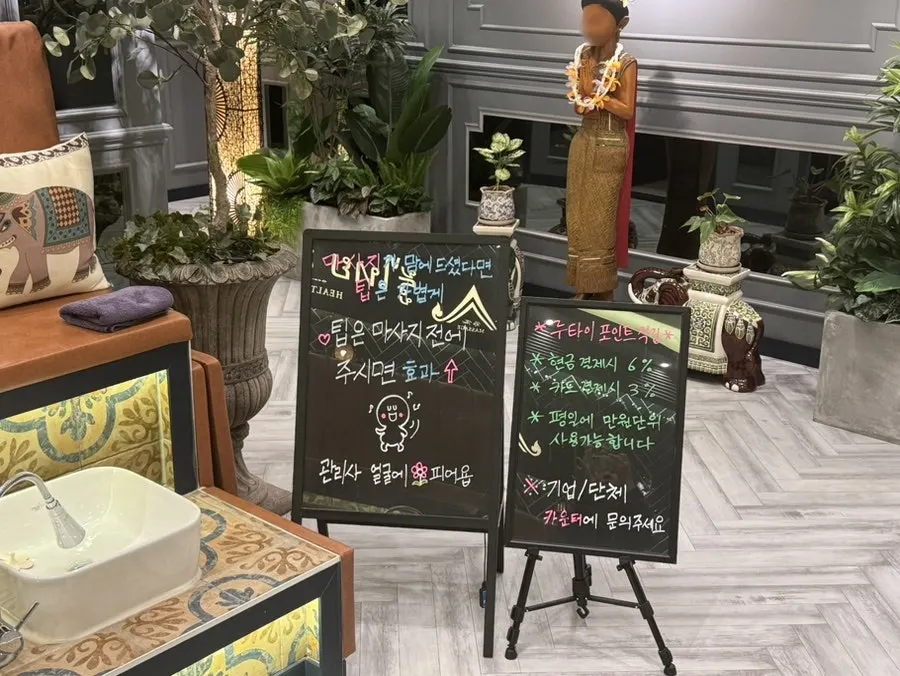 마사지가 맘에 드셨다면
팁은 가볍게
HEALT
♡팁은 마사지전에
주시면 효과⇧
관리사 얼굴에 🌸피어욥
※루타이 포인트 적립※
※현금결제시 6%
※카드 결제시 3%
※평일에 만원단위
사용가능합니다
※기업/단체
카운터에 문의주세요